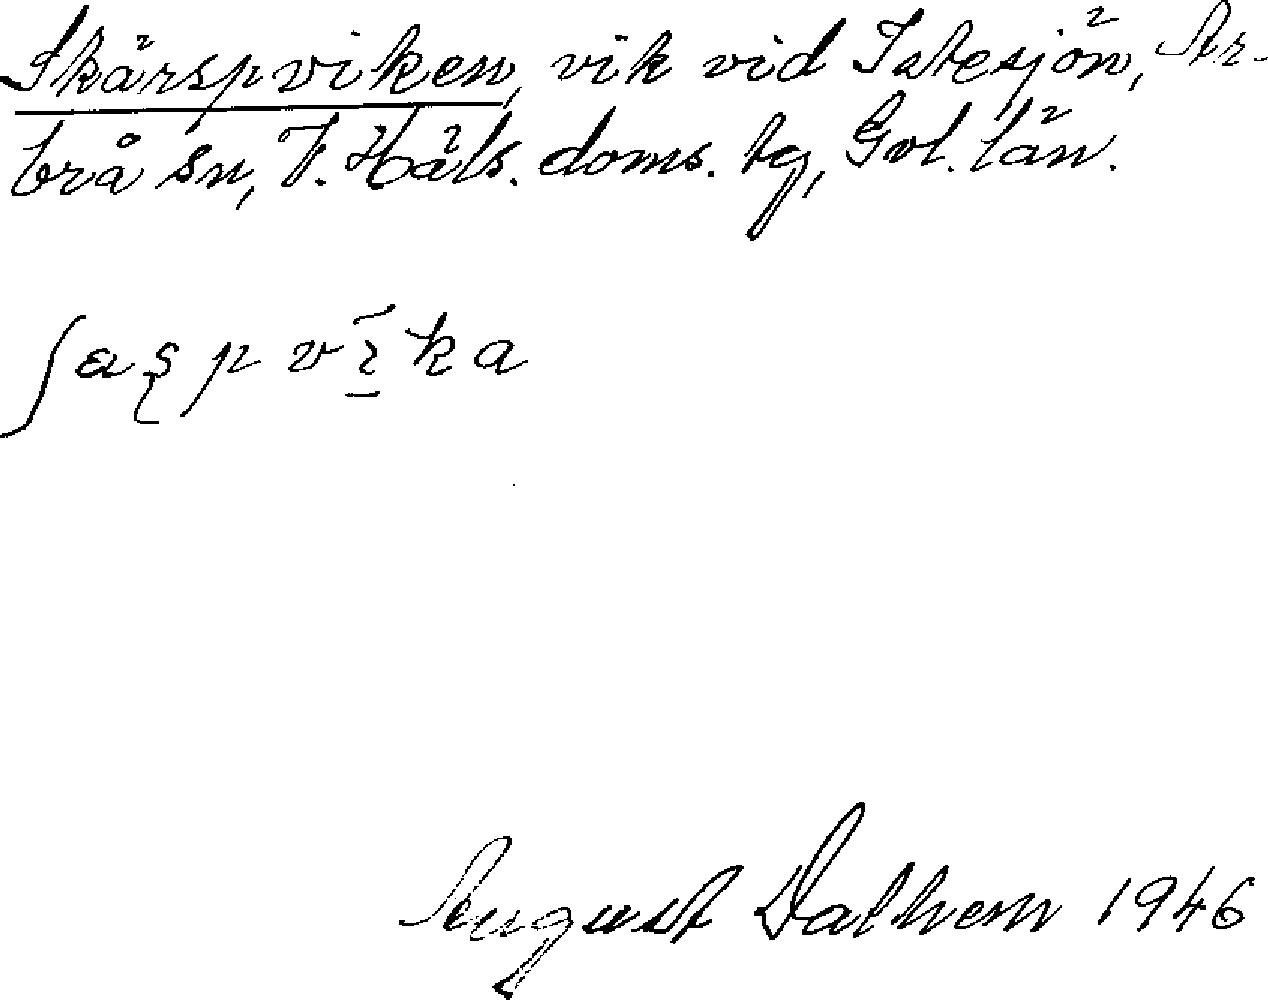 Skärspviken, vik vid Istesjön, Ar-
brå sn, V. Häls. doms. tg, Gvl. län.
ʃæʂpvῑ̰ka
August Dalhem 1946